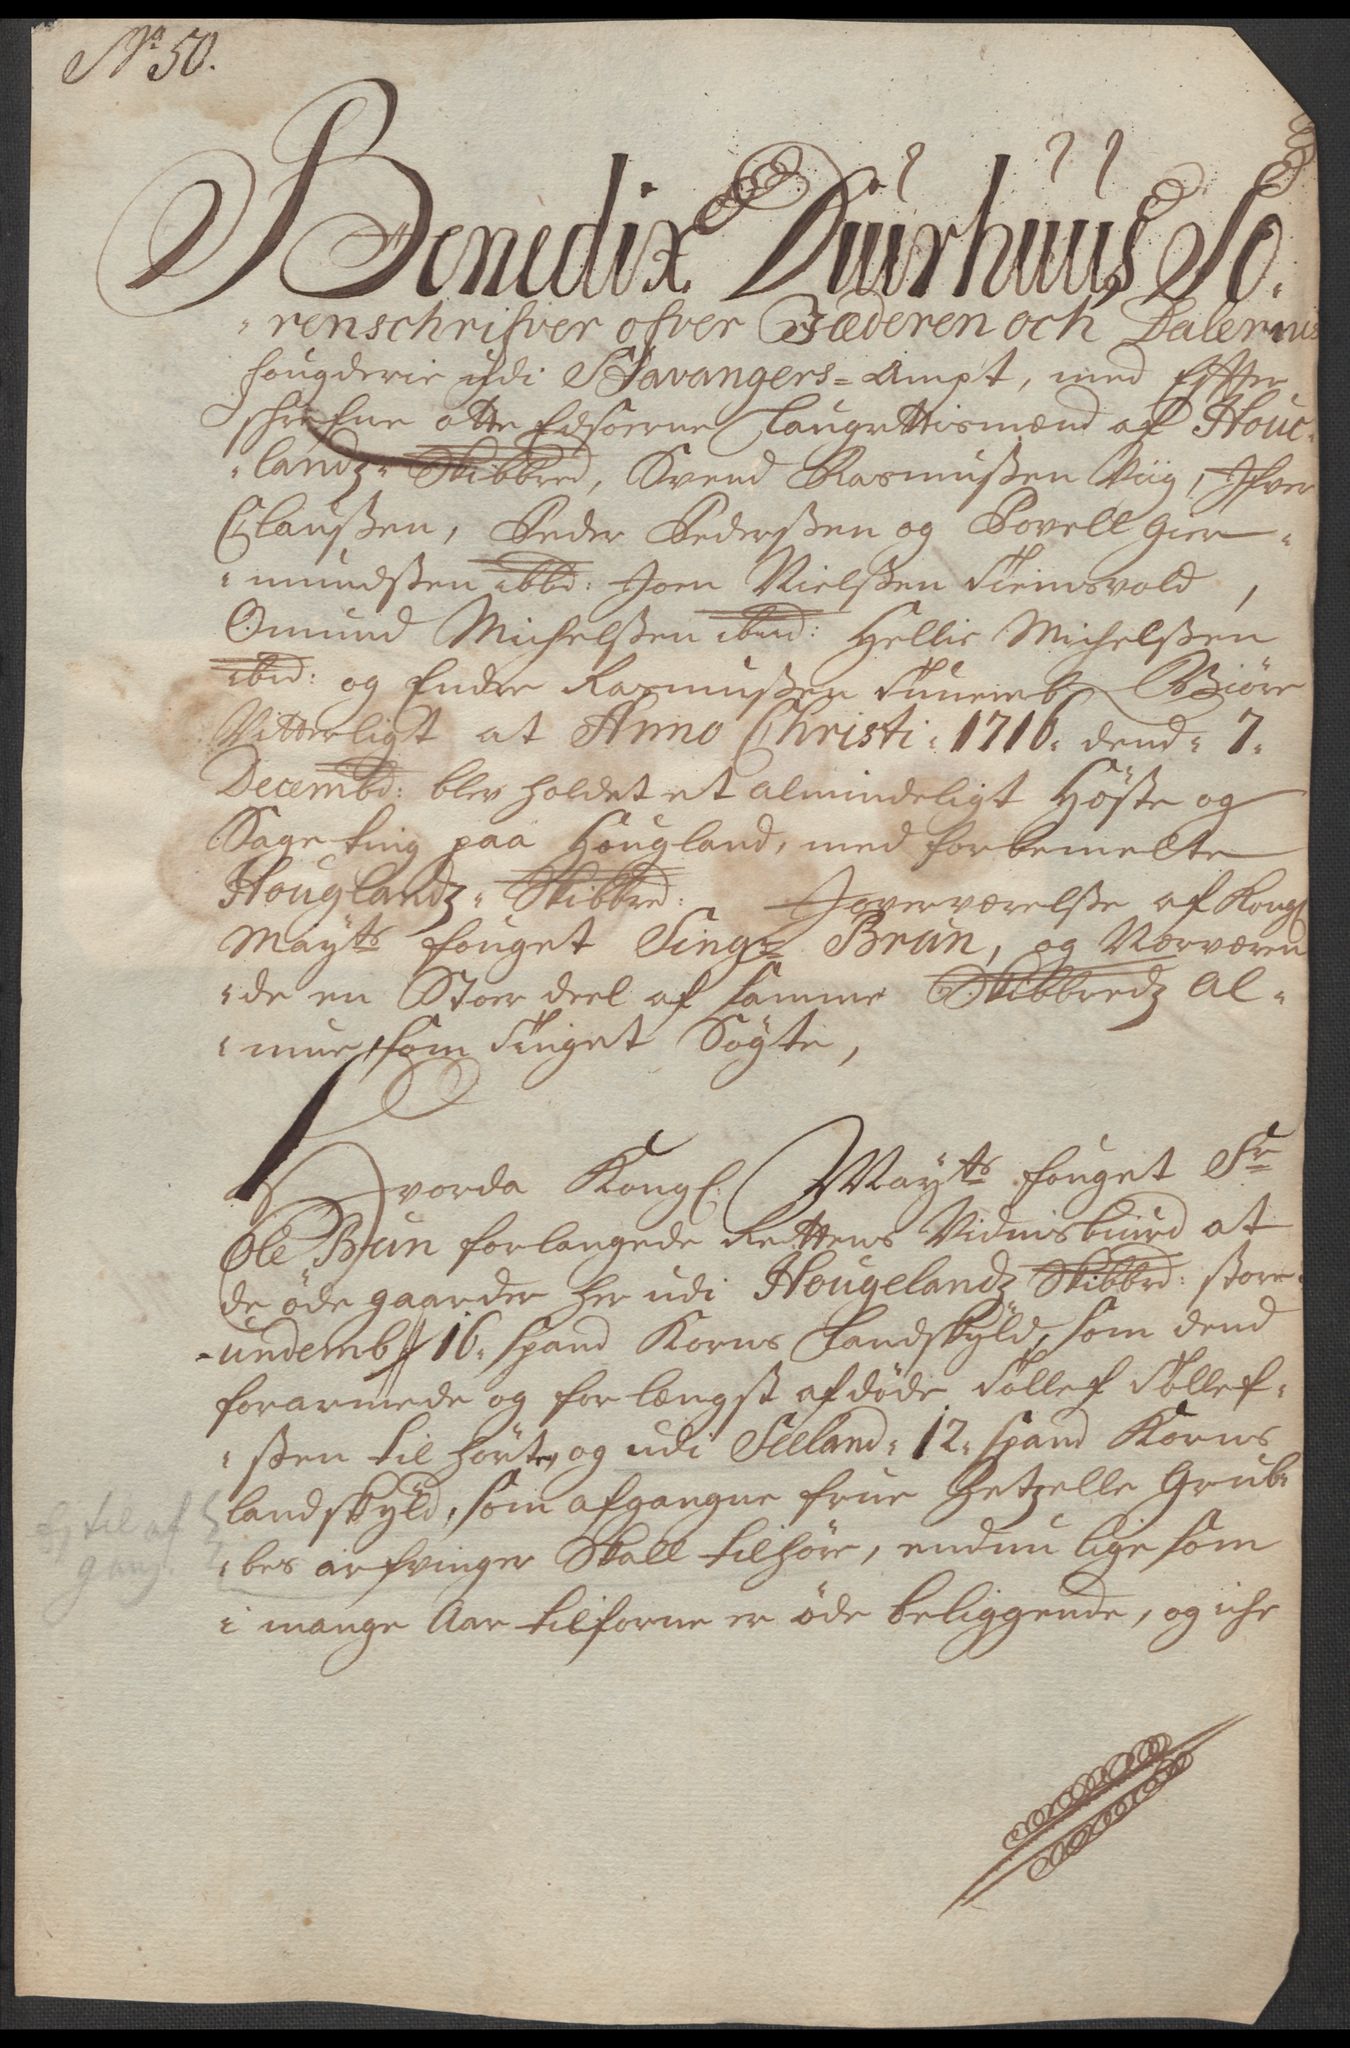 No 50.
Benedix Duurhuus, So-
renschrifver ofver Jæderen och Dalernis
fougderie udi Stavangers-Ampt, med Effter-
schrefne otte Edsoerne Laugrettismænd af Houg-
landz Skibbred, Svend Rasmusßen Viig, Ifver
Claußen, Peder Pederßen og Povell Gier-
mundßen ibbd: Joen Nielßen Tiemsvold,
Omund Michelßen ibid: Hellie Michelßen
ibid: og Endre Rasmußen Tuneimb, Giöre
Vitterligt at Anno Christi 1716. dend 7.
Decembd: blev holdet et almindeligt Höste og
Sage ting paa Hougland, med forbemelte
Houglandz Skibbrd: Joverværelße af Kongl
Mayts fouget Singr Brun, og Nærværen
de en Stoer deel af samme Skibbredz Al-
mue, som Tinget Sögte,
Hvorda Kongl: Mayts fouget Sr
Ole Brun forlangede Rettens Vidnisbuird at
de öde gaarder her udi Hougelandz Skibbrd: store
undemb 16. spand Korns Landskyld, som dend
forarmede og for længst afdöde Tollef Tollef-
ßen til hörte, og udi Seeland 12. spand Korns
landskyld, som afgangne frue Hetzelle Grub-
bes arfvinger Skall tilhöre, endnu lige som
i mange Aar tilforne er öde beliggende, og iche
Ej til af
gang.